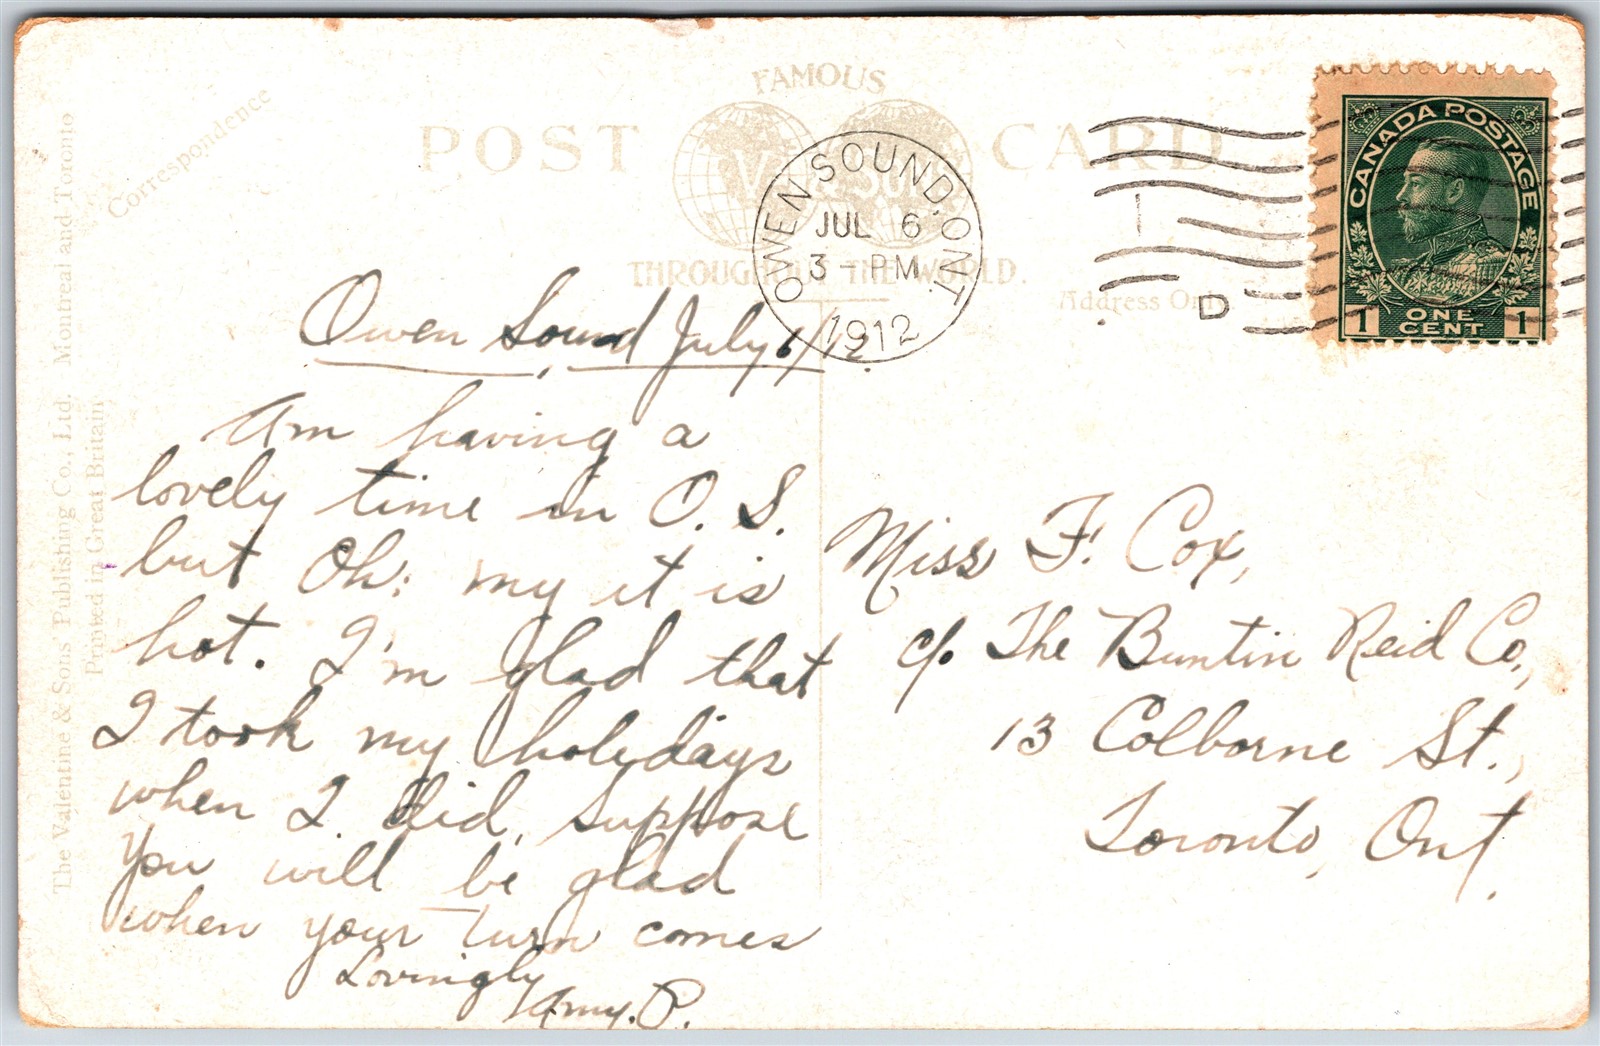 FAMOUS
POST CARD
V & Sons
THROUGHOUT THE WORLD.
Correspondence
Address Only.
The Valentine & Sons' Publishing Co., Ltd. Montreal and Toronto
Printed in Great Britain
OWEN SOUND. ONT.
JUL 6
3 - PM
1912
1
D
CANADA POSTAGE
1 ONE CENT 1
Owen Sound July 6/12
Am having a
lovely time in O. S.
but Oh: my it is
hot. I'm glad that
I took my holidays
when I did, suppose
you will be glad
when your turn comes
Lovingly
Amy. P.
Miss F. Cox,
c/o The Buntin Reid Co.,
13 Colborne St.,
Toronto, Ont.